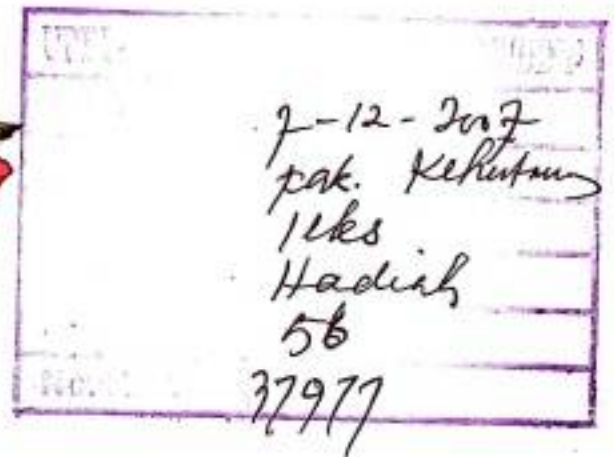 7-12-2007
Fak. Kehutanan
1 eks
Hadiah
5b
37977